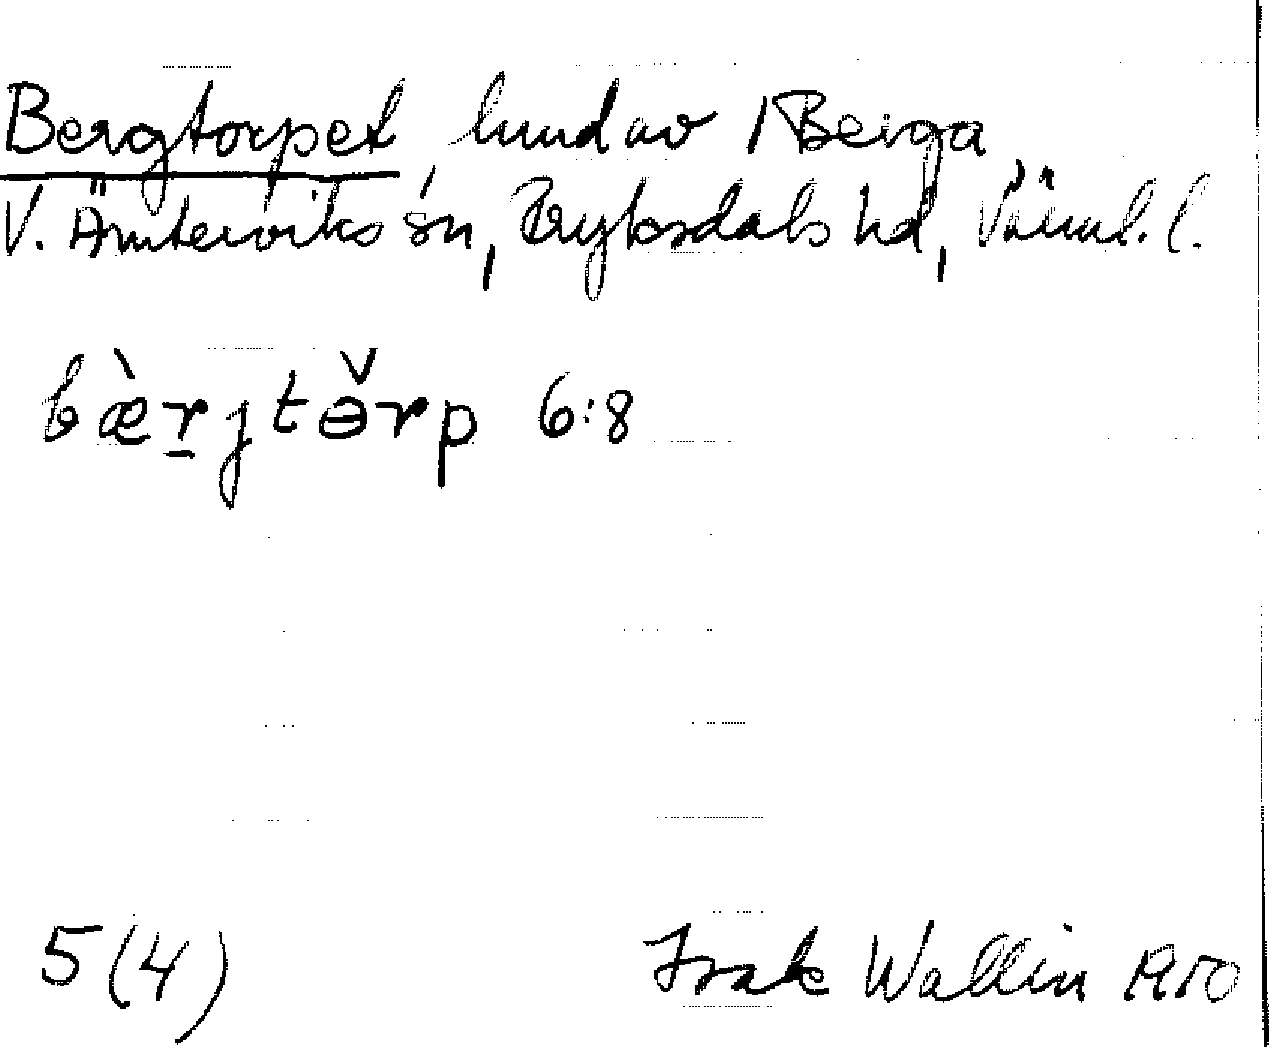 Bergtorpet, hmd av 1 Berga
V. Ämterviks sn, Fryksdals hd, Värml. l.
bæ̀r̠jtɵ̌rp 6:8
5(4) Isak Wallin 1950